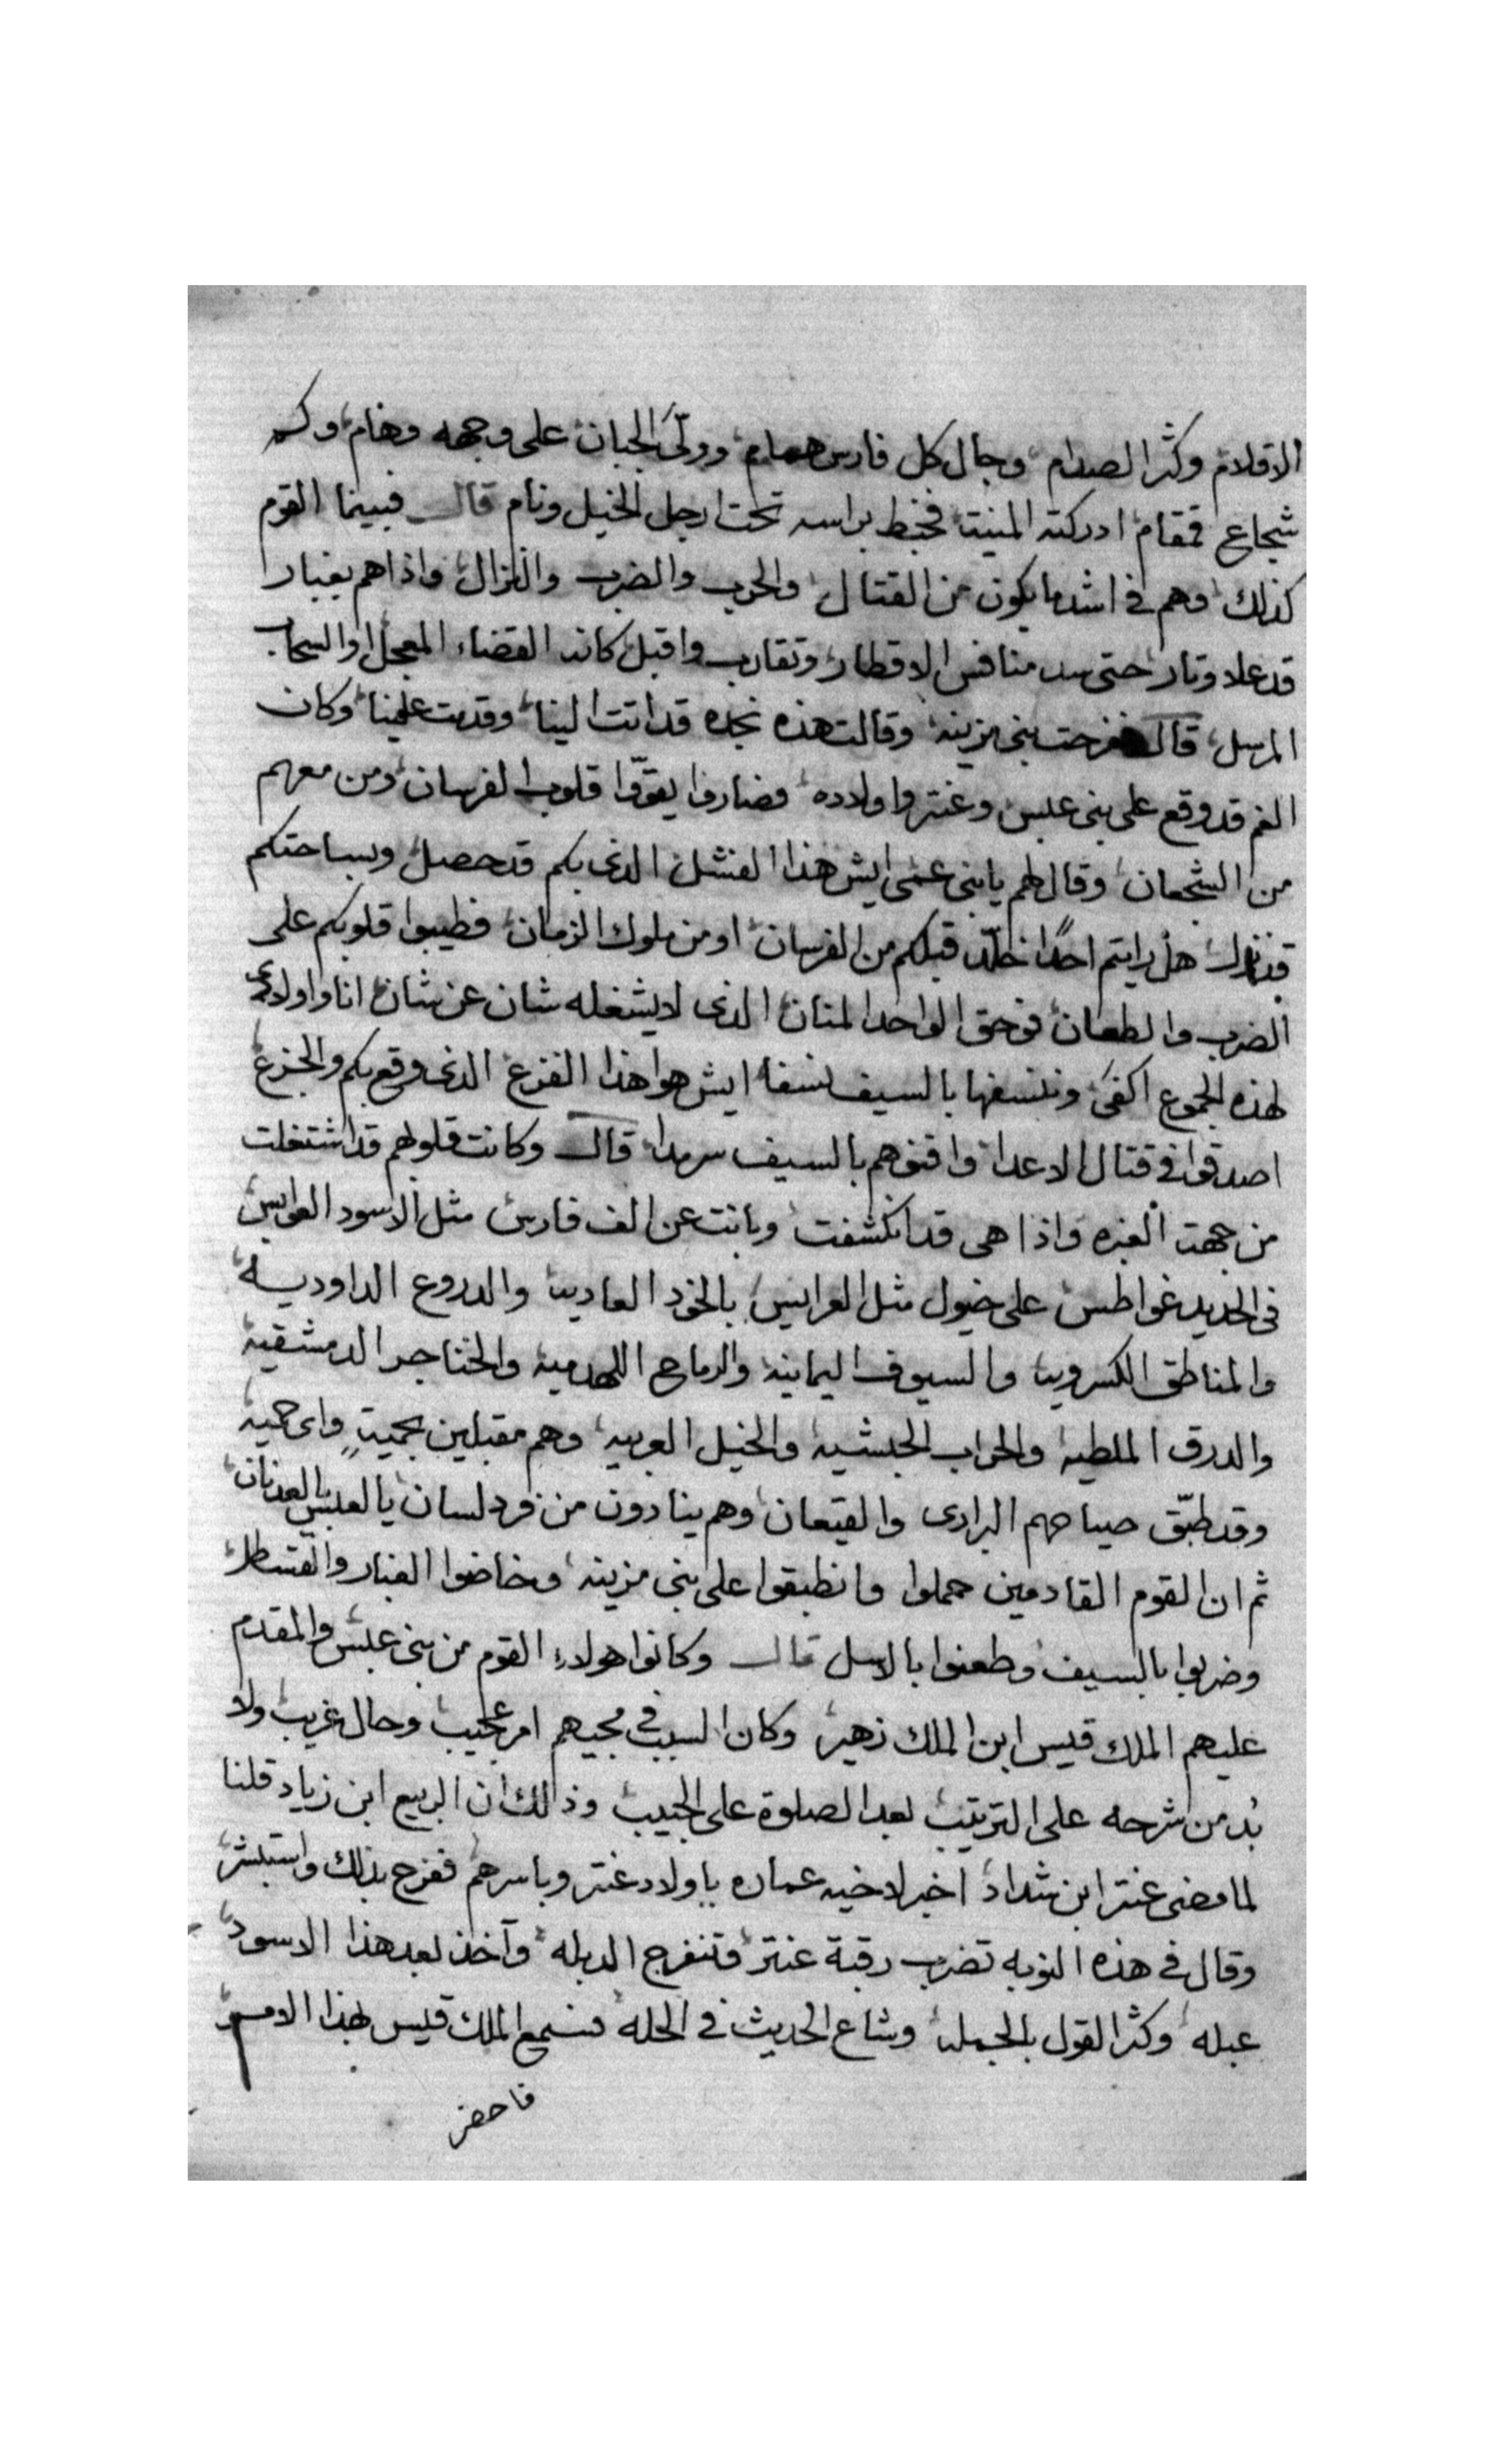 الاقلام وكثر الصدام وجال كل فارس همام وولّى الجبان على وجهه وهام وكم
شجاع قمقام ادركته المنية فخبط براسه تحت ارجل الخيل ونام قال فبينما القوم
كذلك وهم في اشد ما يكون من القتال والحرب والضرب والنزال واذا هم بغبار
قد علا وثار حتى سد منافس الاقطار وتقارب واقبل كانه القضاء المعجل او السحاب
المرسل قال ففرحت بنى مزينه وقالت هذه نجده قد اتت الينا وقدمت علينا وكان
الغم قد وقع على بنى عبس وعنتر واولاده فصاروا يقوّوا قلوب الفرسان ومن معهم
من الشجعان وقال لهم يا بنى عمى ايش هذا الفشل الذى بكم قد حصل وبساحتكم
قد نزل هل رايتم احدًا خلّد قبلكم من الفرسان او من ملوك الزمان فطيبوا قلوبكم على
الضرب والطعان فوحق الواحد المنان الذى لا يشغله شان عن شان انا واولادى
لهذه الجموع اكفى وننسفها بالسيف نسفا ايش هوا هذا الفزع الذى وقع بكم والجزع
اصدقوا فى قتال الاعدا وافنوهم بالسيف سرمدا قال وكانت قلوبهم قد اشتغلت
من جهت الغبره واذا هى قد انكشفت وبانت عن الف فارس مثل الاسود العوابس
فى الحديد غواطس على خيول مثل العرايس بالخود العاديه والدروع الداوديه
والمناطق الكسرويه والسيوف اليمانيه والرماح اللهدميه والخناجر الدمشقيه
والدرق الملطيه والحراب الحبشيه والخيل العربيه وهم مقبلين بحميةٍ واى حميه
وقد طبّق صياحهم البرارى والقيعان وهم ينادون من فرد لسان يا لعبس يا لعدنان
ثم ان القوم القادمين حملوا وانطبقوا على بنى مزينه وخاضوا الغبار والقسطل
وضربوا بالسيف وطعنوا بالاسل قال وكانوا هولاء القوم من بنى عبس والمقدم
عليهم الملك قيس ابن الملك زهير وكان السبب فى مجيهم امر عجيب وحال غريب ولا
بُد من شرحه على الترتيب بعد الصلوة على الحبيب وذالك ان الربيع ابن زياد قلنا
لما مضى عنتر ابن شداد اخبر لاخيه عماره باولاد عنتر وباسرهم ففرح بذلك واستبشر
وقال فى هذه النوبه تضرب رقبة عنتر وتنفرج الدبله وآخذ بعد هذا الاسود
عبله وكثر القول بالجمله وشاع الحديث فى الحله فسمع الملك قيس بهذا الامر
فاحضر